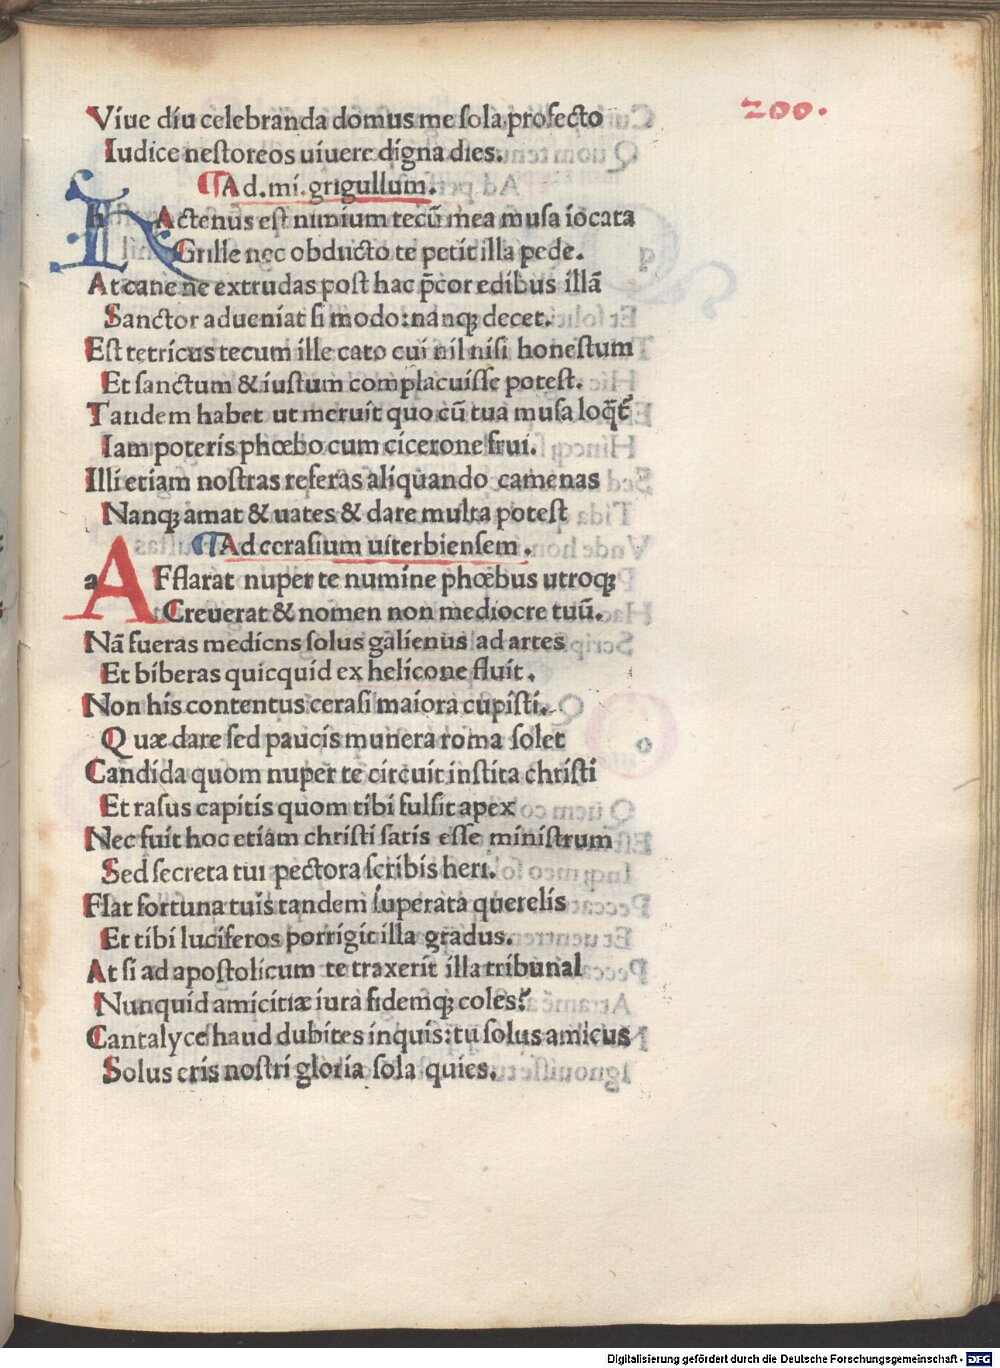 200.
Viue diu celebranda domus me ſola profecto
Iudice neſtoreos uiuere digna dies.
¶Ad.mi.grigullum.
hActenus eſt nimium tecū mea muſa iocata
Grille nec obducto te petit illa pede.
At cane ne extrudas poſt hac p̄cor edibus illā
Sanctor adueniat ſi modo:nanꝗ decet.
Eſt tetricus tecum ille cato cui nil niſi honeſtum
Et ſanctum & iuſtum complacuiſſe poteſt.
Tandem habet ut meruit quo cū tua muſa loq̄t᷑
Iam poteris phœbo cum cicerone frui.
Illi etiam noſtras referas aliquando camenas
Nanꝗ amat & uates & dare multa poteſt
¶Ad ceraſium uiterbienſem.
aFflarat nuper te numine phœbus utroꝗ
Creuerat & nomen non mediocre tuū.
Nā fueras medicns ſolus galienus ad artes
Et biberas quicquid ex helicone fluit.
Non his contentus ceraſi maiora cupiſti.
Quæ dare ſed paucis munera roma ſolet
Candida quom nuper te circuit inſtita chriſti
Et raſus capitis quom tibi fulſit apex
Nec fuit hoc etiam chriſti ſatis eſſe miniſtrum
Sed ſecreta tui pectora ſcribis heri.
Flat fortuna tuis tandem ſuperata querelis
Et tibi luciferos porrigit illa gradus.
At ſi ad apoſtolicum te traxerit illa tribunal
Nunquid amicitiæ iura fidemꝗ coles?
Cantalyce haud dubites inquis:tu ſolus amicus
Solus eris noſtri gloria ſola quies.
Digitalisierung gefördert durch die Deutsche Forschungsgemeinschaft - DFG